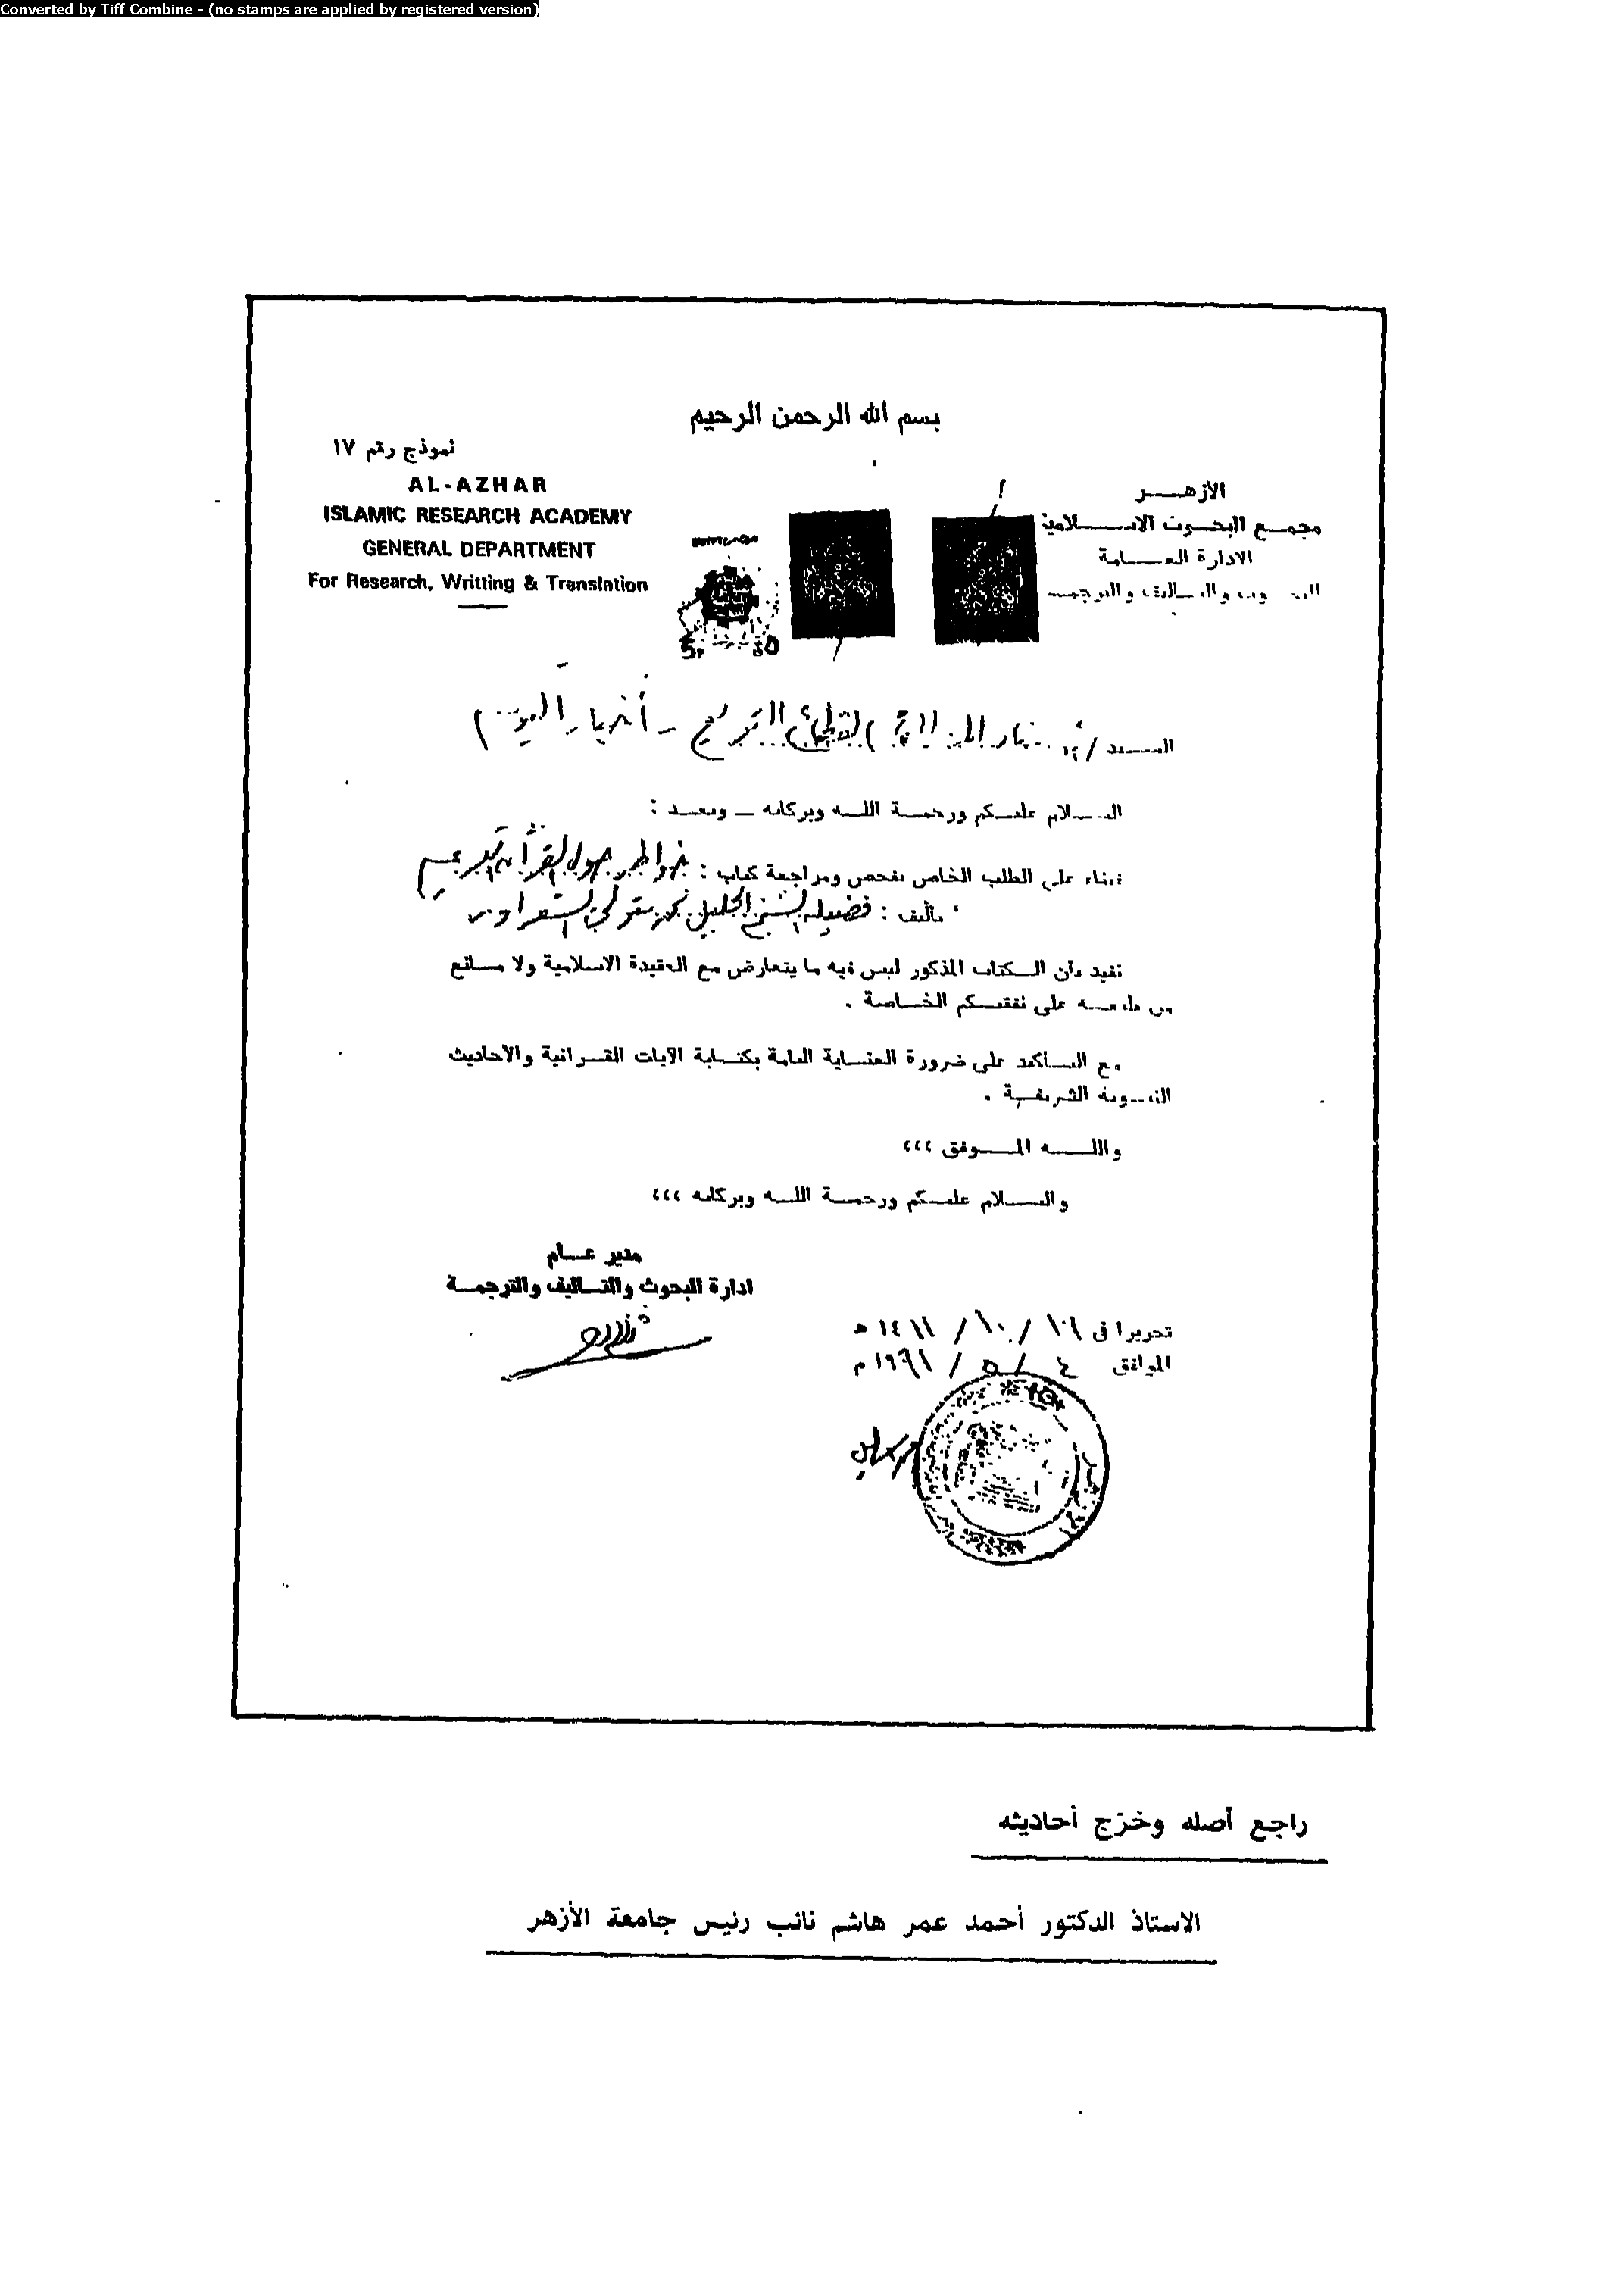 Converted by Tiff Combine - (no stamps are applied by registered version)
بسم الله الرحمن الرحيم
نموذج رقم ١٧
AL-AZHAR
ISLAMIC RESEARCH ACADEMY
GENERAL DEPARTMENT
For Research, Writting & Translation
الأزهــر
مجمع البحوث الاسلامية
الادارة العامة
للبحوث والتأليف والترجمة
السيد / أخبار اليوم
السلام عليكم ورحمة الله وبركاته ــ وبعد :
فبناء على الطلب الخاص بفحص ومراجعة كتاب : خواطر حول القرآن الكريم
تأليف : فضيلة الشيخ الجليل محمد متولى الشعراوى
نفيد بأن الكتاب المذكور ليس فيه ما يتعارض مع العقيدة الاسلامية ولا مانع
من طبعه على نفقتكم الخاصة .
مع التأكيد على ضرورة العناية التامة بكتابة الآيات القرآنية والأحاديث
النبوية الشريفة .
والله الموفق ،،،
والسلام عليكم ورحمة الله وبركاته ،،،
مدير عام
ادارة البحوث والتأليف والترجمة
تحريرا فى / ١٠ / ١٤١١ هـ
الموافق ٤ / ٥ / ١٩٩١ م
راجع أصله وخرّج أحاديثه
الاستاذ الدكتور أحمد عمر هاشم نائب رئيس جامعة الأزهر